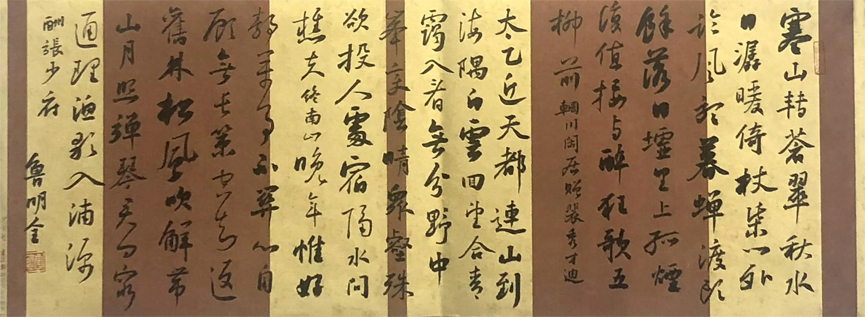 寒山轉蒼翠秋水
日潺湲倚杖柴門外
臨風聽暮蟬渡頭
餘落日墟里上孤煙
復值接輿醉狂歌五
柳前 輞川閑居贈裴秀才迪
太乙近天都連山到
海隅白雲回望合青
靄入看無分野中
峯變陰晴眾壑殊
欲投人處宿隔水問
樵夫 終南山 晚年惟好
靜萬事不關心自
顧無長策空知返
舊林松風吹解帶
山月照彈琴君問窮
通理漁歌入浦深
酬張少府
魯明全